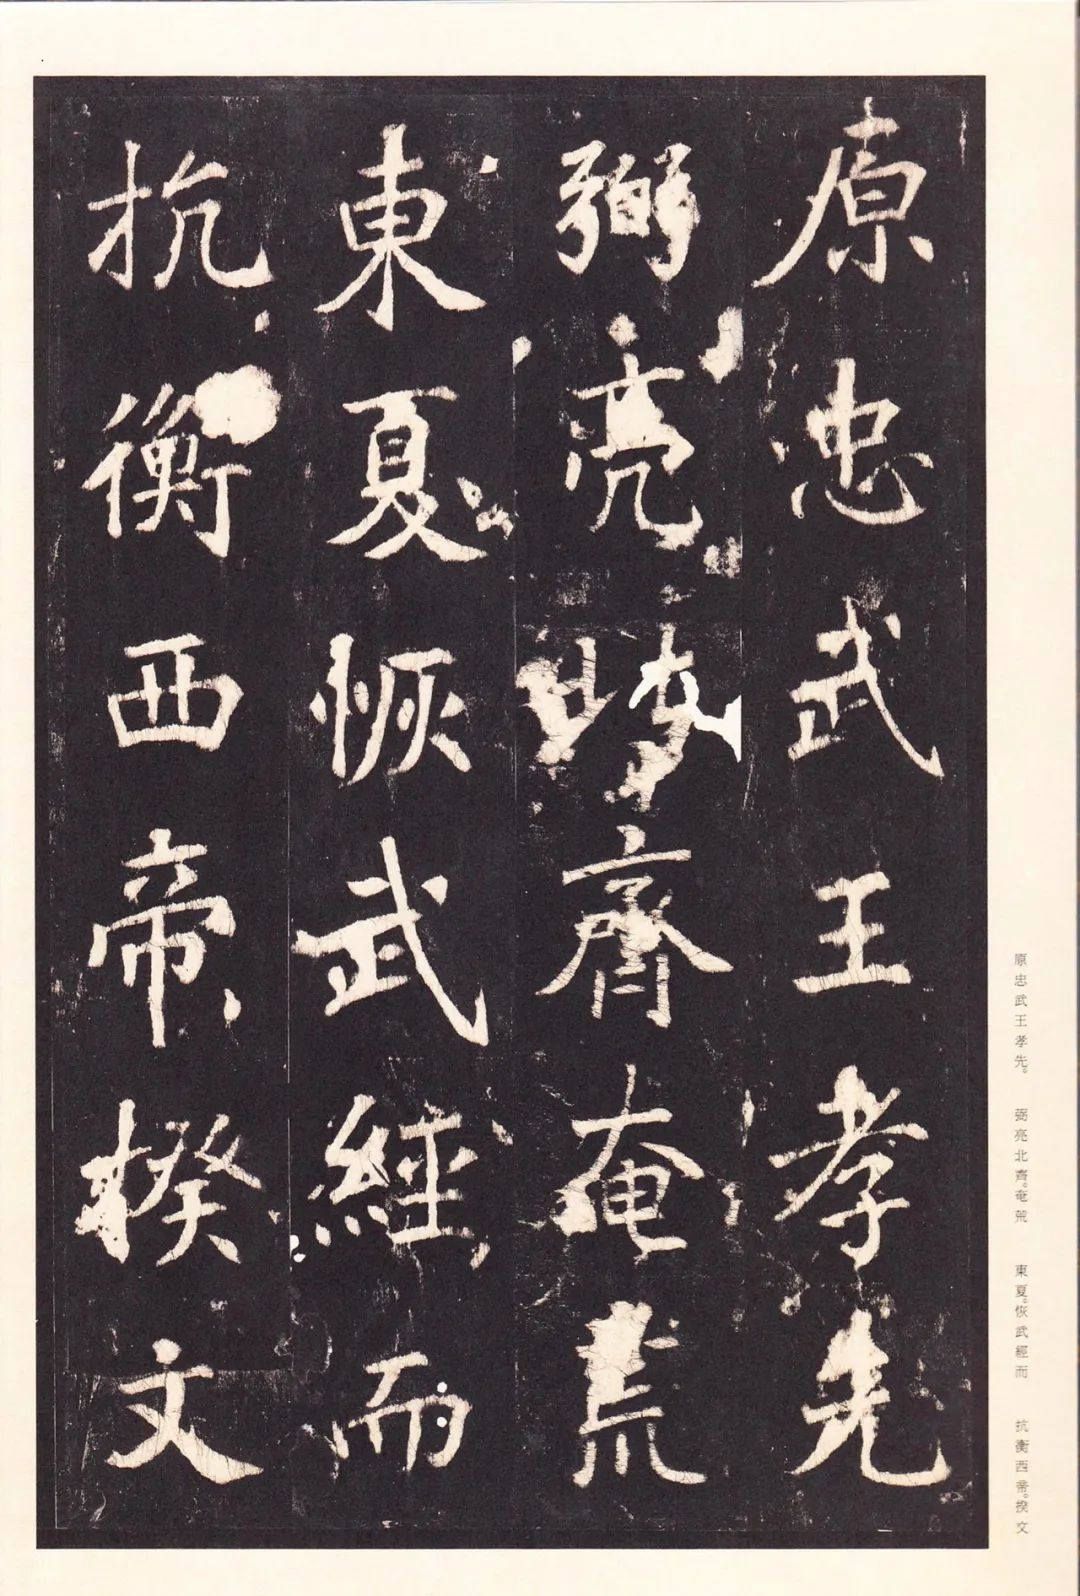 原忠武王孝先
弼亮北齊奄荒
東夏恢武經而
抗衡西帝揆文
原忠武王孝先。　弼亮北齊。奄荒　東夏。恢武經而　抗衡西帝。揆文